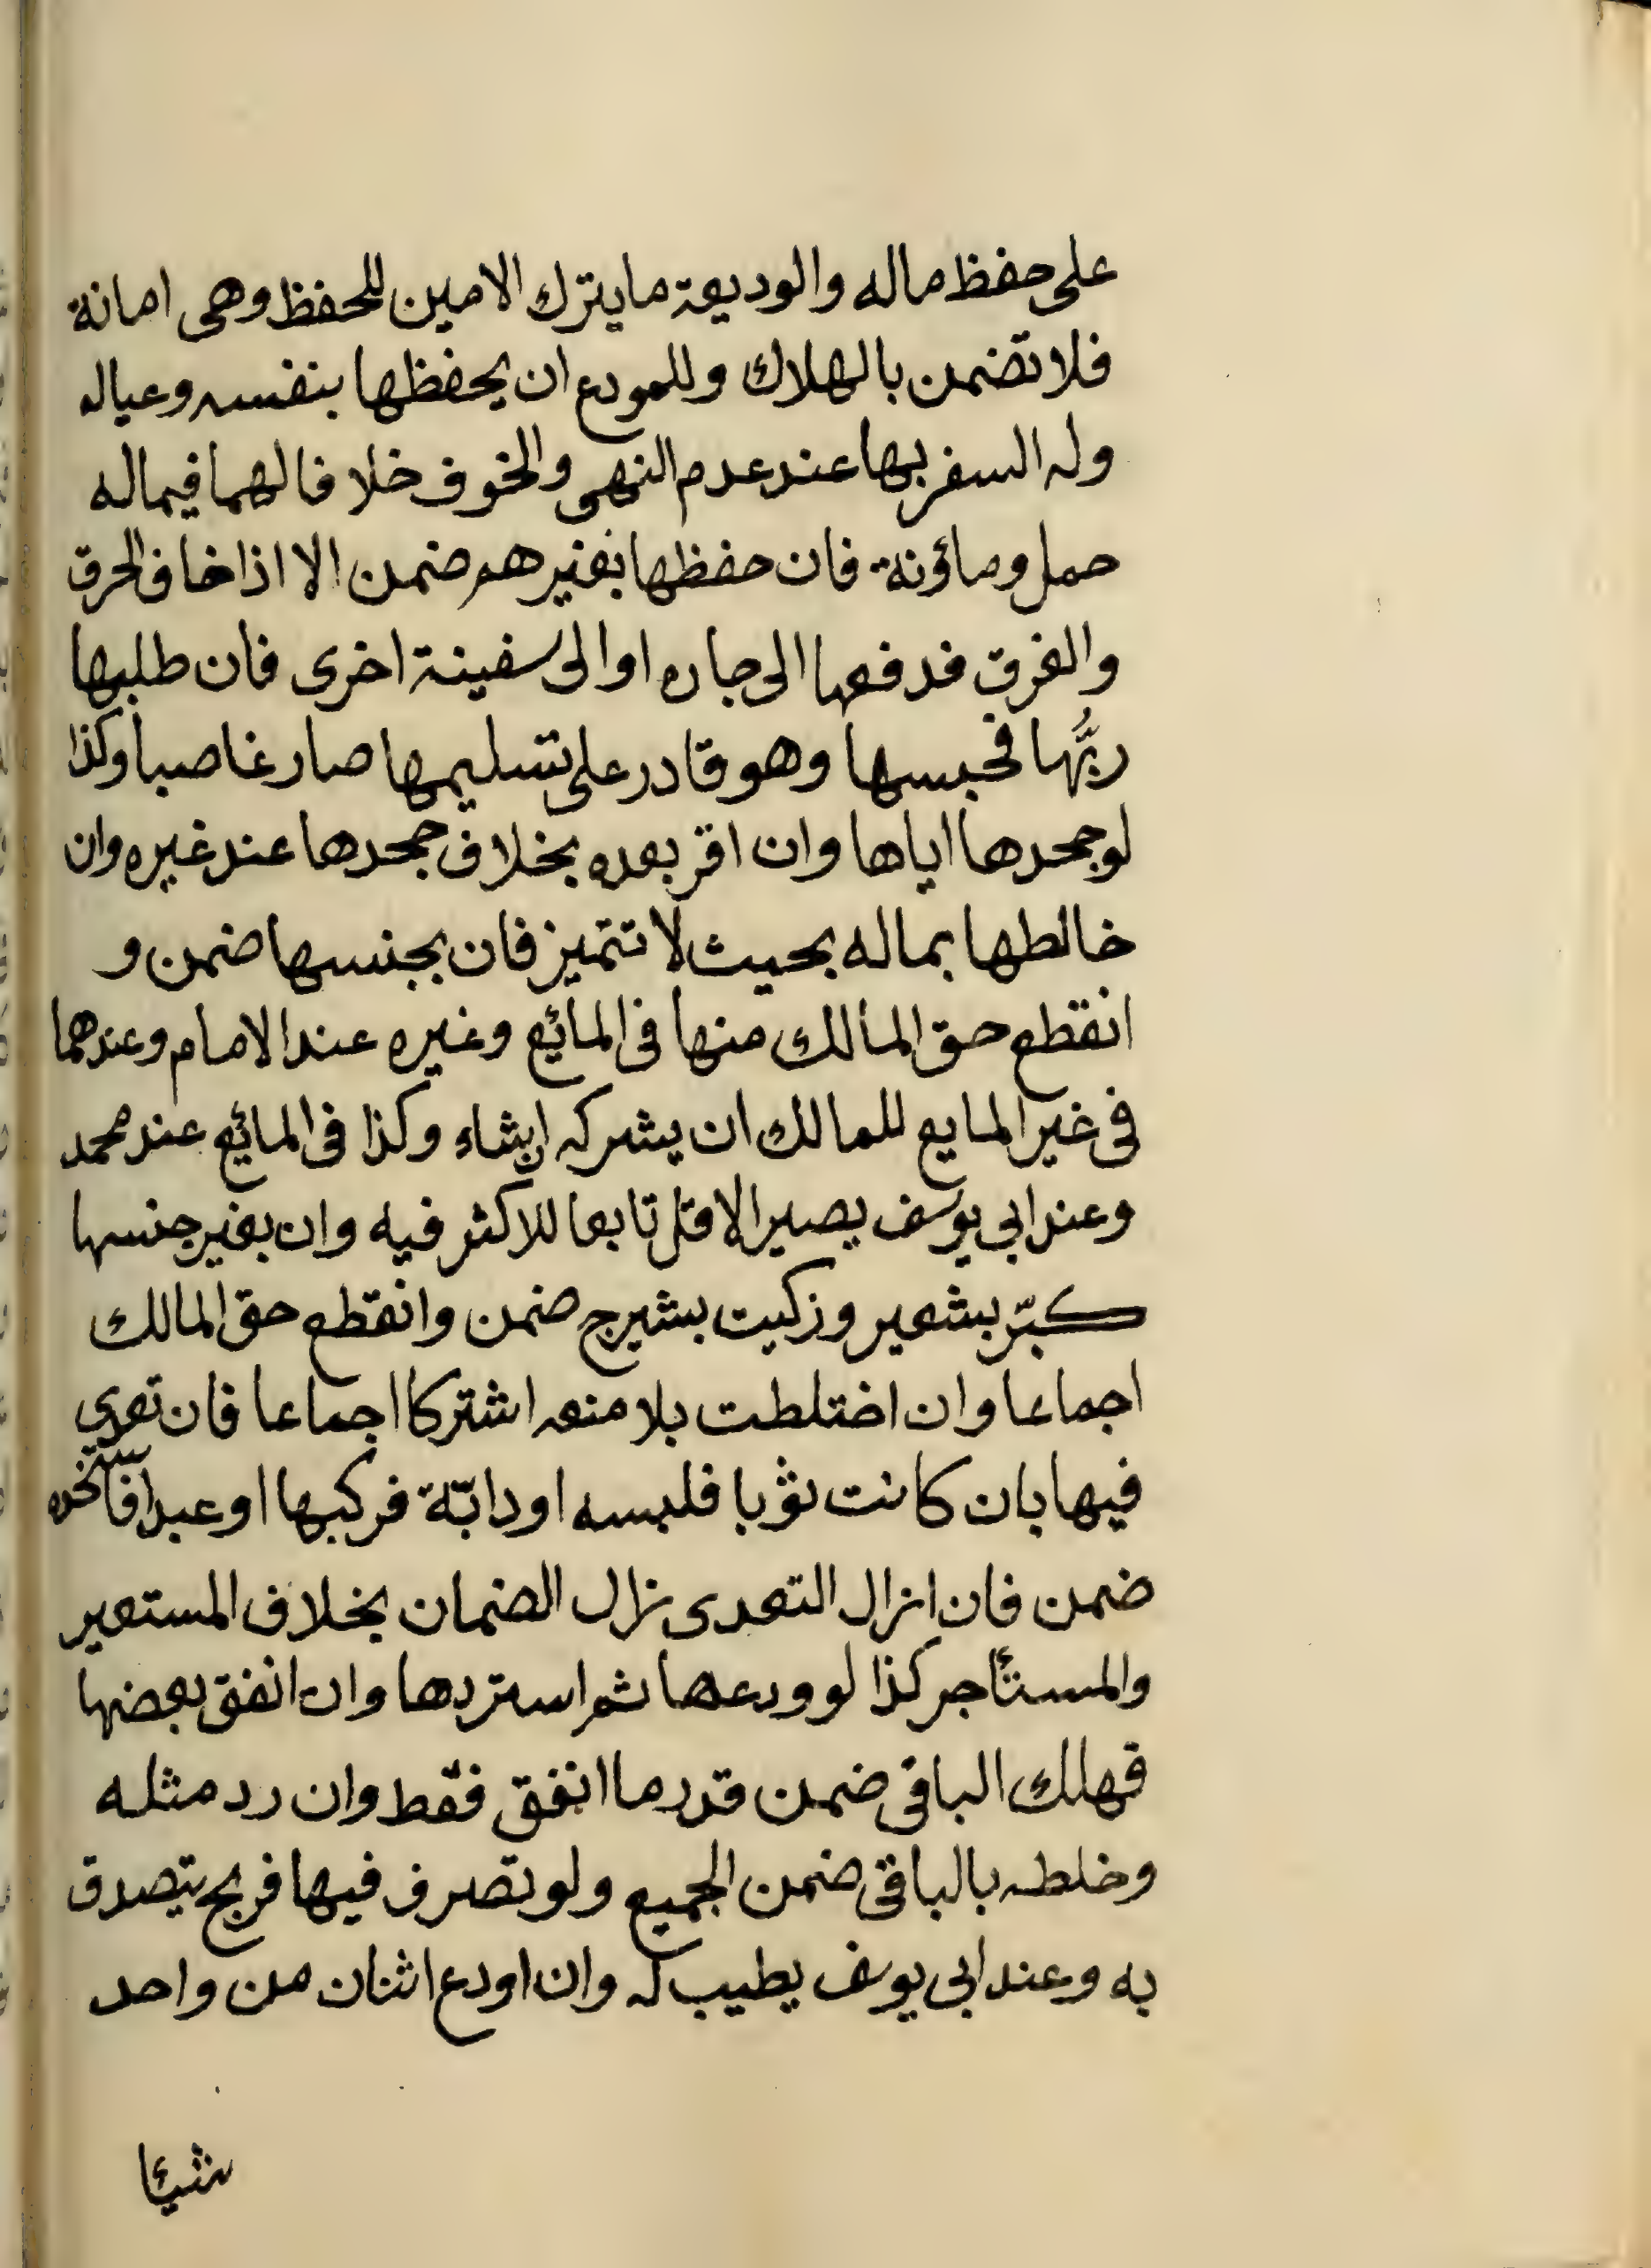 على حفظ ماله والوديعة ما يترك الامين للحفظ وهى امانة
فلا تضمن بالهلاك وللمودع ان يحفظها بنفسه وعياله
وله السفر بها عند عدم النهى والخوف خلافا لهما فيما له
حمل ومأؤنة فان حفظها بغيرهم ضمن الا اذا خاف الحرق
والغرق فدفعها الى جاره او الى سفينة اخرى فان طلبها
ربُّها فحبسها وهو قادر على تسليمها صار غاصبا وكذا
لو جحدها اياها وان اقر بعده بخلاف جحدها عند غيره وان
خالطها بماله بحيث لا تتميز فان بجنسها ضمن و
انقطع حق المالك منها فى المائع وغيره عند الامام وعندهما
فى غير المايع للمالك ان يشركه ان شاء وكذا فى المائع عند محمد
وعند ابى يوسف يصير الاقل تابعا للاكثر فيه وان بغير جنسها
كبرّ بشعير وزكيت بشيرج ضمن وانقطع حق المالك
اجماعا وان اختلطت بلا منعه اشتركا اجماعا فان تعدى
فيها بان كانت ثوبا فلبسه او دابّة فركبها او عبدا فاستخدمه
ضمن فان ازال التعدى زال الضمان بخلاف المستعير
والمستأجر كذا لو ودعها ثم استردها وان انفق بعضها
فهلك الباقى ضمن قدر ما انفق فقط وان رد مثله
وخلطه بالباقى ضمن الجميع ولو تصرف فيها فربح يتصدق
به وعند ابى يوسف يطيب له وان اودع اثنان من واحد
شيئا